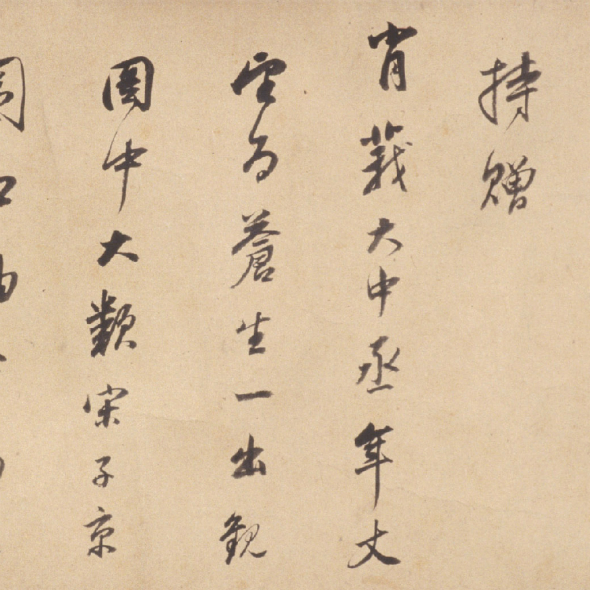 持贈
肖莪大中丞年丈
為蒼生一出觀
圖中大類宋子京